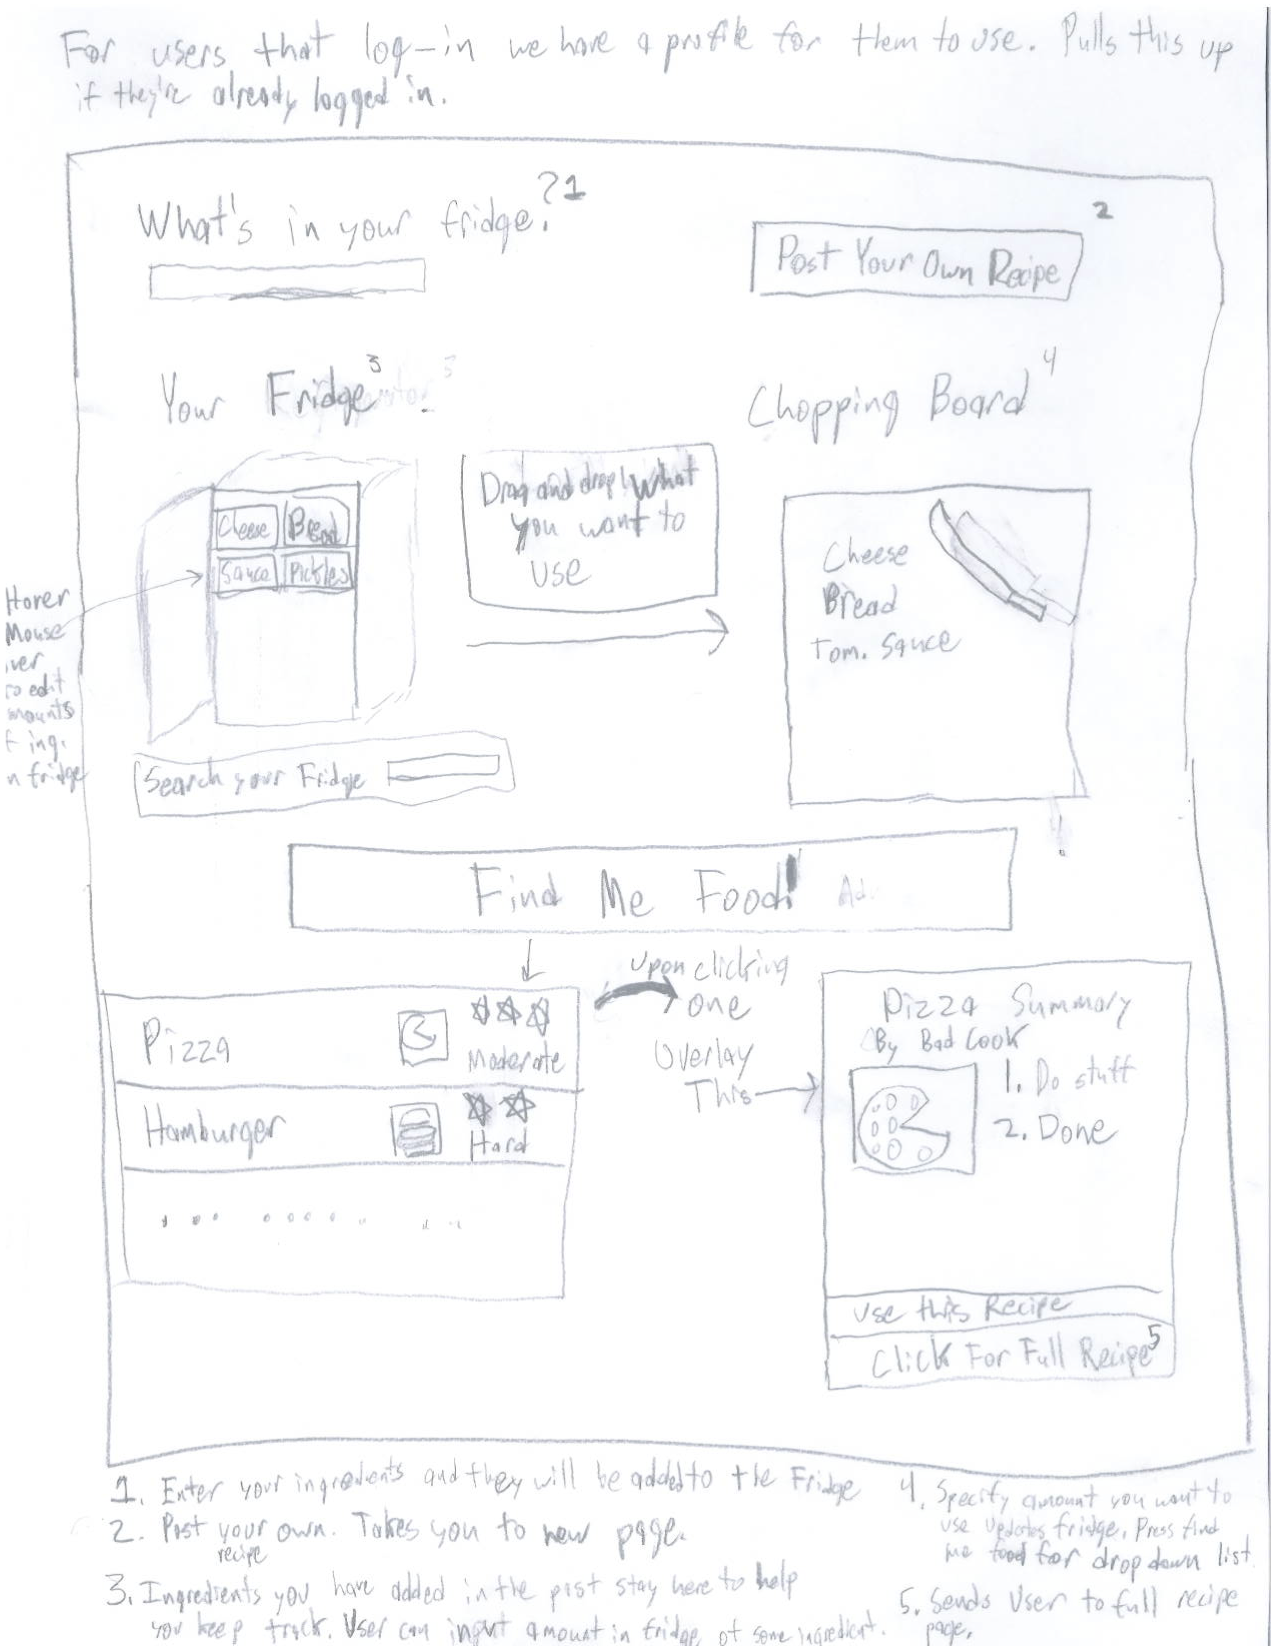 For users that log-in we have a profile for them to use. Pulls this up
if they're already logged in.
What's in your fridge? 1
2
Post Your Own Recipe
Your Fridge 3
Chopping Board 4
Cheese Bread
Sauce Pickles
Drag and drop what
you want to
use
Cheese
Bread
Tom. Sauce
Hover
Mouse
ver
to edit
mounts
f ing.
n fridge
Search your Fridge
Find Me Food!
Pizza
Moderate
Hamburger
Hard
Upon clicking
one
Overlay
This
Pizza Summary
By Bad Cook
1. Do stuff
2. Done
Use this Recipe
Click For Full Recipe 5
1. Enter your ingredients and they will be added to the Fridge
2. Post your own. Takes you to new page.
recipe
3. Ingredients you have added in the past stay here to help
you keep track. User can input amount in fridge of some ingredient.
4. Specify amount you want to
use updates fridge. Press find
me food for drop down list
5. Sends User to full recipe
page.